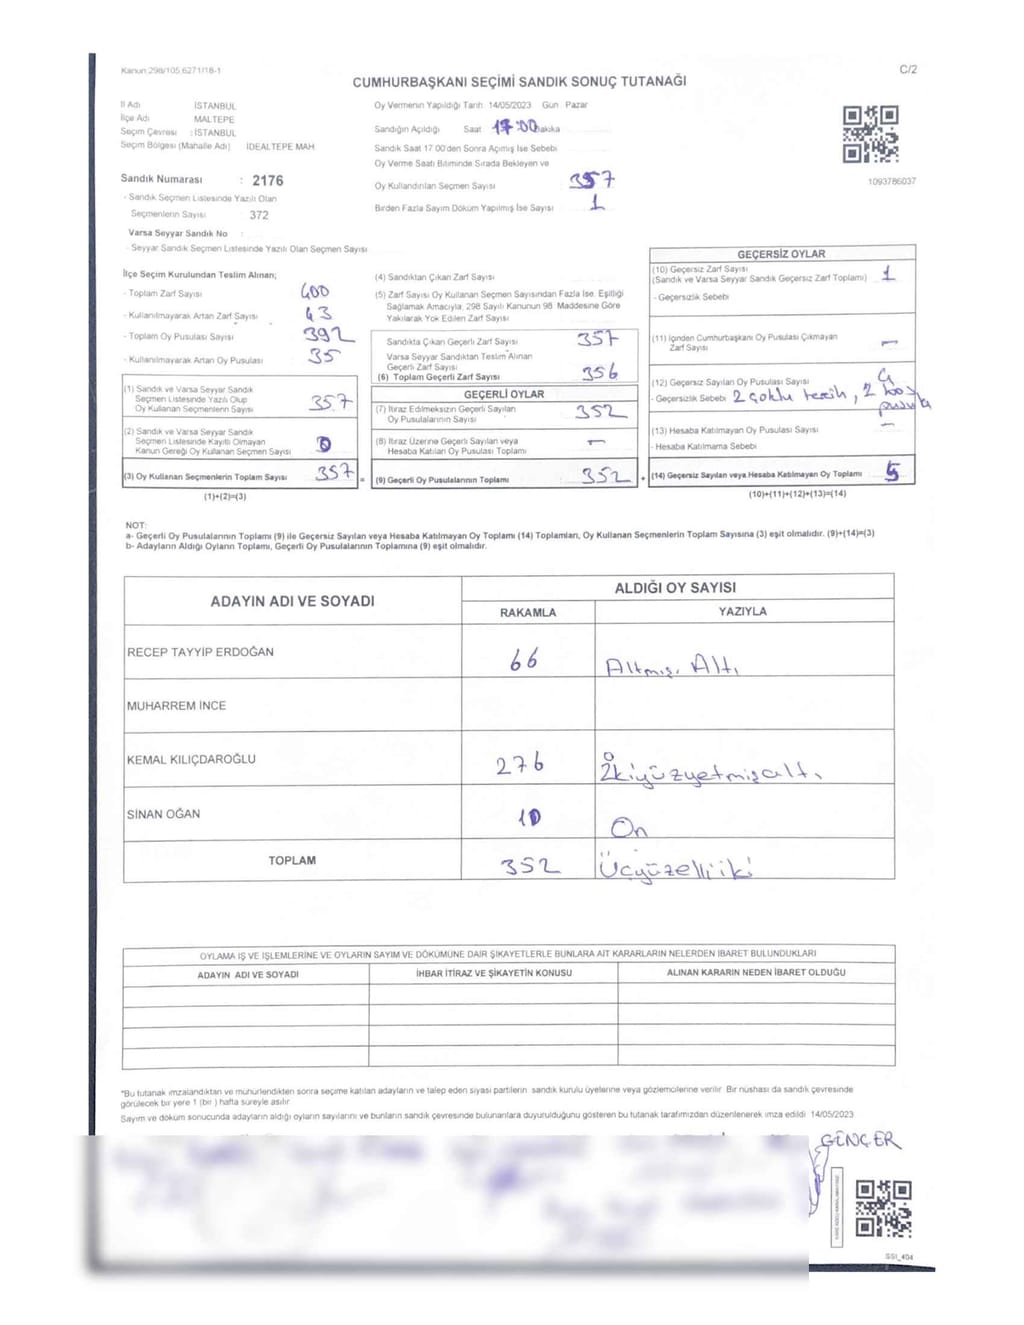 Kanun:298/105,6271/18-1
C/2
CUMHURBAŞKANI SEÇİMİ SANDIK SONUÇ TUTANAĞI
İl Adı İSTANBUL
İlçe Adı MALTEPE
Seçim Çevresi : İSTANBUL
Seçim Bölgesi (Mahalle Adı) İDEALTEPE MAH
Sandık Numarası : 2176
- Sandık Seçmen Listesinde Yazılı Olan
Seçmenlerin Sayısı 372
Varsa Seyyar Sandık No :
- Seyyar Sandık Seçmen Listesinde Yazılı Olan Seçmen Sayısı
Oy Vermenin Yapıldığı Tarih 14/05/2023 Gün Pazar
Sandığın Açıldığı Saat 17:00 Dakika
Sandık Saat 17 00'den Sonra Açımış İse Sebebi
Oy Verme Saati Bitiminde Sırada Bekleyen ve
Oy Kullandırılan Seçmen Sayısı 357
Birden Fazla Sayım Döküm Yapılmış İse Sayısı 1
1093786037
İlçe Seçim Kurulundan Teslim Alınan;
- Toplam Zarf Sayısı 400
- Kullanılmayarak Artan Zarf Sayısı 43
- Toplam Oy Pusulası Sayısı 392
- Kullanılmayarak Artan Oy Pusulası 35
(1) Sandık ve Varsa Seyyar Sandık
Seçmen Listesinde Yazılı Olup
Oy Kullanan Seçmenlerin Sayısı 357
(2) Sandık ve Varsa Seyyar Sandık
Seçmen Listesinde Kayıtlı Olmayan
Kanun Gereği Oy Kullanan Seçmen Sayısı 0
(3) Oy Kullanan Seçmenlerin Toplam Sayısı 357 =
(1)+(2)=(3)
(4) Sandıktan Çıkan Zarf Sayısı
(5) Zarf Sayısı Oy Kullanan Seçmen Sayısından Fazla İse, Eşitliği
Sağlamak Amacıyla, 298 Sayılı Kanunun 98. Maddesine Göre
Yakılarak Yok Edilen Zarf Sayısı
Sandıkta Çıkan Geçerli Zarf Sayısı 357
Varsa Seyyar Sandıktan Teslim Alınan
Geçerli Zarf Sayısı
(6) Toplam Geçerli Zarf Sayısı 356
GEÇERLİ OYLAR
(7) İtiraz Edilmeksizin Geçerli Sayılan
Oy Pusulalarının Sayısı 352
(8) İtiraz Üzerine Geçerli Sayılan veya
Hesaba Katılan Oy Pusulası Toplamı –
(9) Geçerli Oy Pusulalarının Toplamı 352 +
GEÇERSİZ OYLAR
(10) Geçersiz Zarf Sayısı
(Sandık ve Varsa Seyyar Sandık Geçersiz Zarf Toplamı) 1
- Geçersizlik Sebebi
(11) İçinden Cumhurbaşkanı Oy Pusulası Çıkmayan
Zarf Sayısı –
(12) Geçersiz Sayılan Oy Pusulası Sayısı 4
- Geçersizlik Sebebi 2 çoklu tercih, 2 boş
pusula
(13) Hesaba Katılmayan Oy Pusulası Sayısı –
- Hesaba Katılmama Sebebi
(14) Geçersiz Sayılan veya Hesaba Katılmayan Oy Toplamı 5
(10)+(11)+(12)+(13)=(14)
NOT:
a- Geçerli Oy Pusulalarının Toplamı (9) ile Geçersiz Sayılan veya Hesaba Katılmayan Oy Toplamı (14) Toplamları, Oy Kullanan Seçmenlerin Toplam Sayısına (3) eşit olmalıdır. (9)+(14)=(3)
b- Adayların Aldığı Oyların Toplamı, Geçerli Oy Pusulalarının Toplamına (9) eşit olmalıdır.
ADAYIN ADI VE SOYADI
ALDIĞI OY SAYISI
RAKAMLA YAZIYLA
RECEP TAYYİP ERDOĞAN 66 Altmış Altı
MUHARREM İNCE
KEMAL KILIÇDAROĞLU 276 İkiyüzyetmişaltı
SİNAN OĞAN 10 On
TOPLAM 352 Üçyüzelliiki
OYLAMA İŞ VE İŞLEMLERİNE VE OYLARIN SAYIM VE DÖKÜMÜNE DAİR ŞİKAYETLERLE BUNLARA AİT KARARLARIN NELERDEN İBARET BULUNDUKLARI
ADAYIN ADI VE SOYADI İHBAR İTİRAZ VE ŞİKAYETİN KONUSU ALINAN KARARIN NEDEN İBARET OLDUĞU
*Bu tutanak imzalandıktan ve mühürlendikten sonra seçime katılan adayların ve talep eden siyasi partilerin sandık kurulu üyelerine veya gözlemcilerine verilir. Bir nüshası da sandık çevresinde
görülecek bir yere 1 (bir ) hafta süreyle asılır
Sayım ve döküm sonucunda adayların aldığı oyların sayılarını ve bunların sandık çevresinde bulunanlara duyurulduğunu gösteren bu tutanak tarafımızdan düzenlenerek imza edildi 14/05/2023
GENÇER
SSI_404